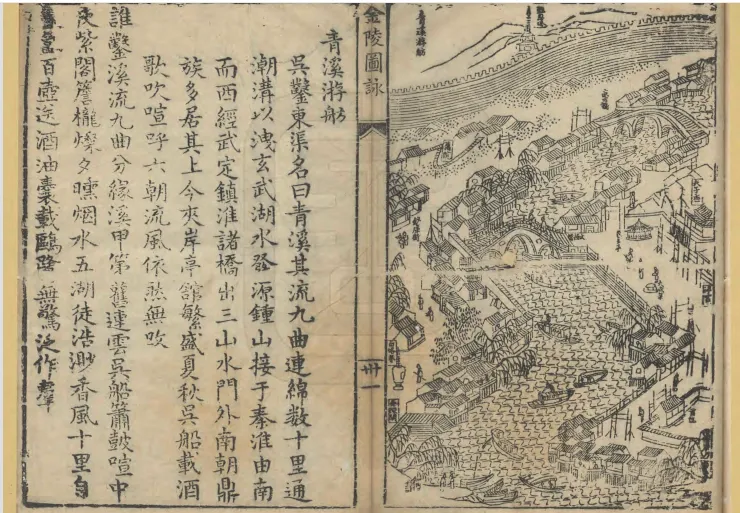 青溪游舫
金陵圖詠
卅一
青溪游舫
吳鑿東渠名曰青溪其流九曲連綿数十里通
潮溝以洩玄武湖水發源鍾山接于秦淮由南
而西經武定鎮淮諸橋出三山水門外南朝鼎
族多居其上今夾岸亭館繁盛夏秋吳船載酒
歌吹喧呼六朝流風依然無改
誰鑿溪流九曲分緣溪甲第舊連雲吳船簫鼓喧中
夜紫閣簷櫳燦夕曛烟水五湖徒浩渺香風十里自
百壺送酒油囊載鷗鷺無驚泛作羣